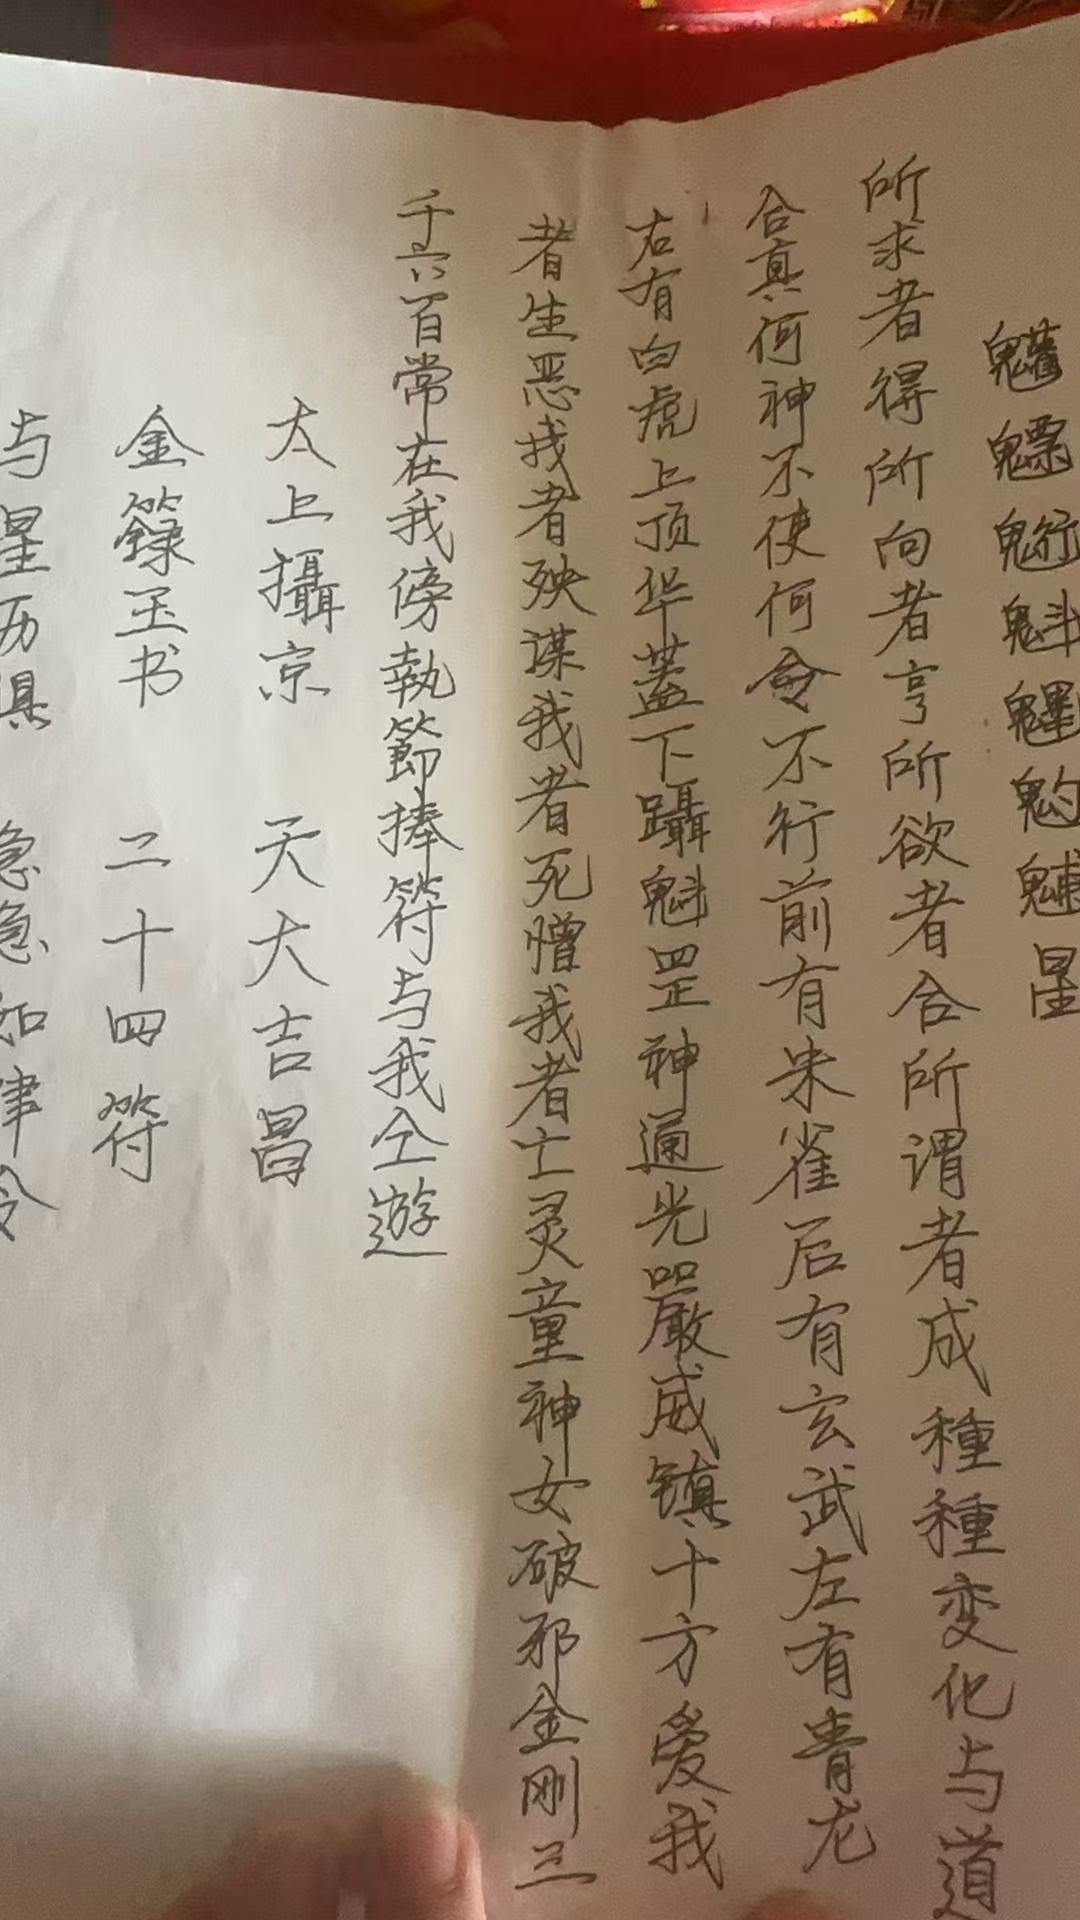 魓魒䰢魁魓魡魖星
所求者得所向者亨所欲者合所谓者成種種变化与道
合真何神不使何令不行前有朱雀后有玄武左有青龙
右有白虎上顶华蓋下躡魁罡神通光嚴威镇十方爱我
者生恶我者殃谋我者死憎我者亡灵童神女破邪金刚三
千六百常在我傍執節捧符与我仝遊
太上攝京 天大吉昌
金籙玉书 二十四符
与星历俱 急急如律令